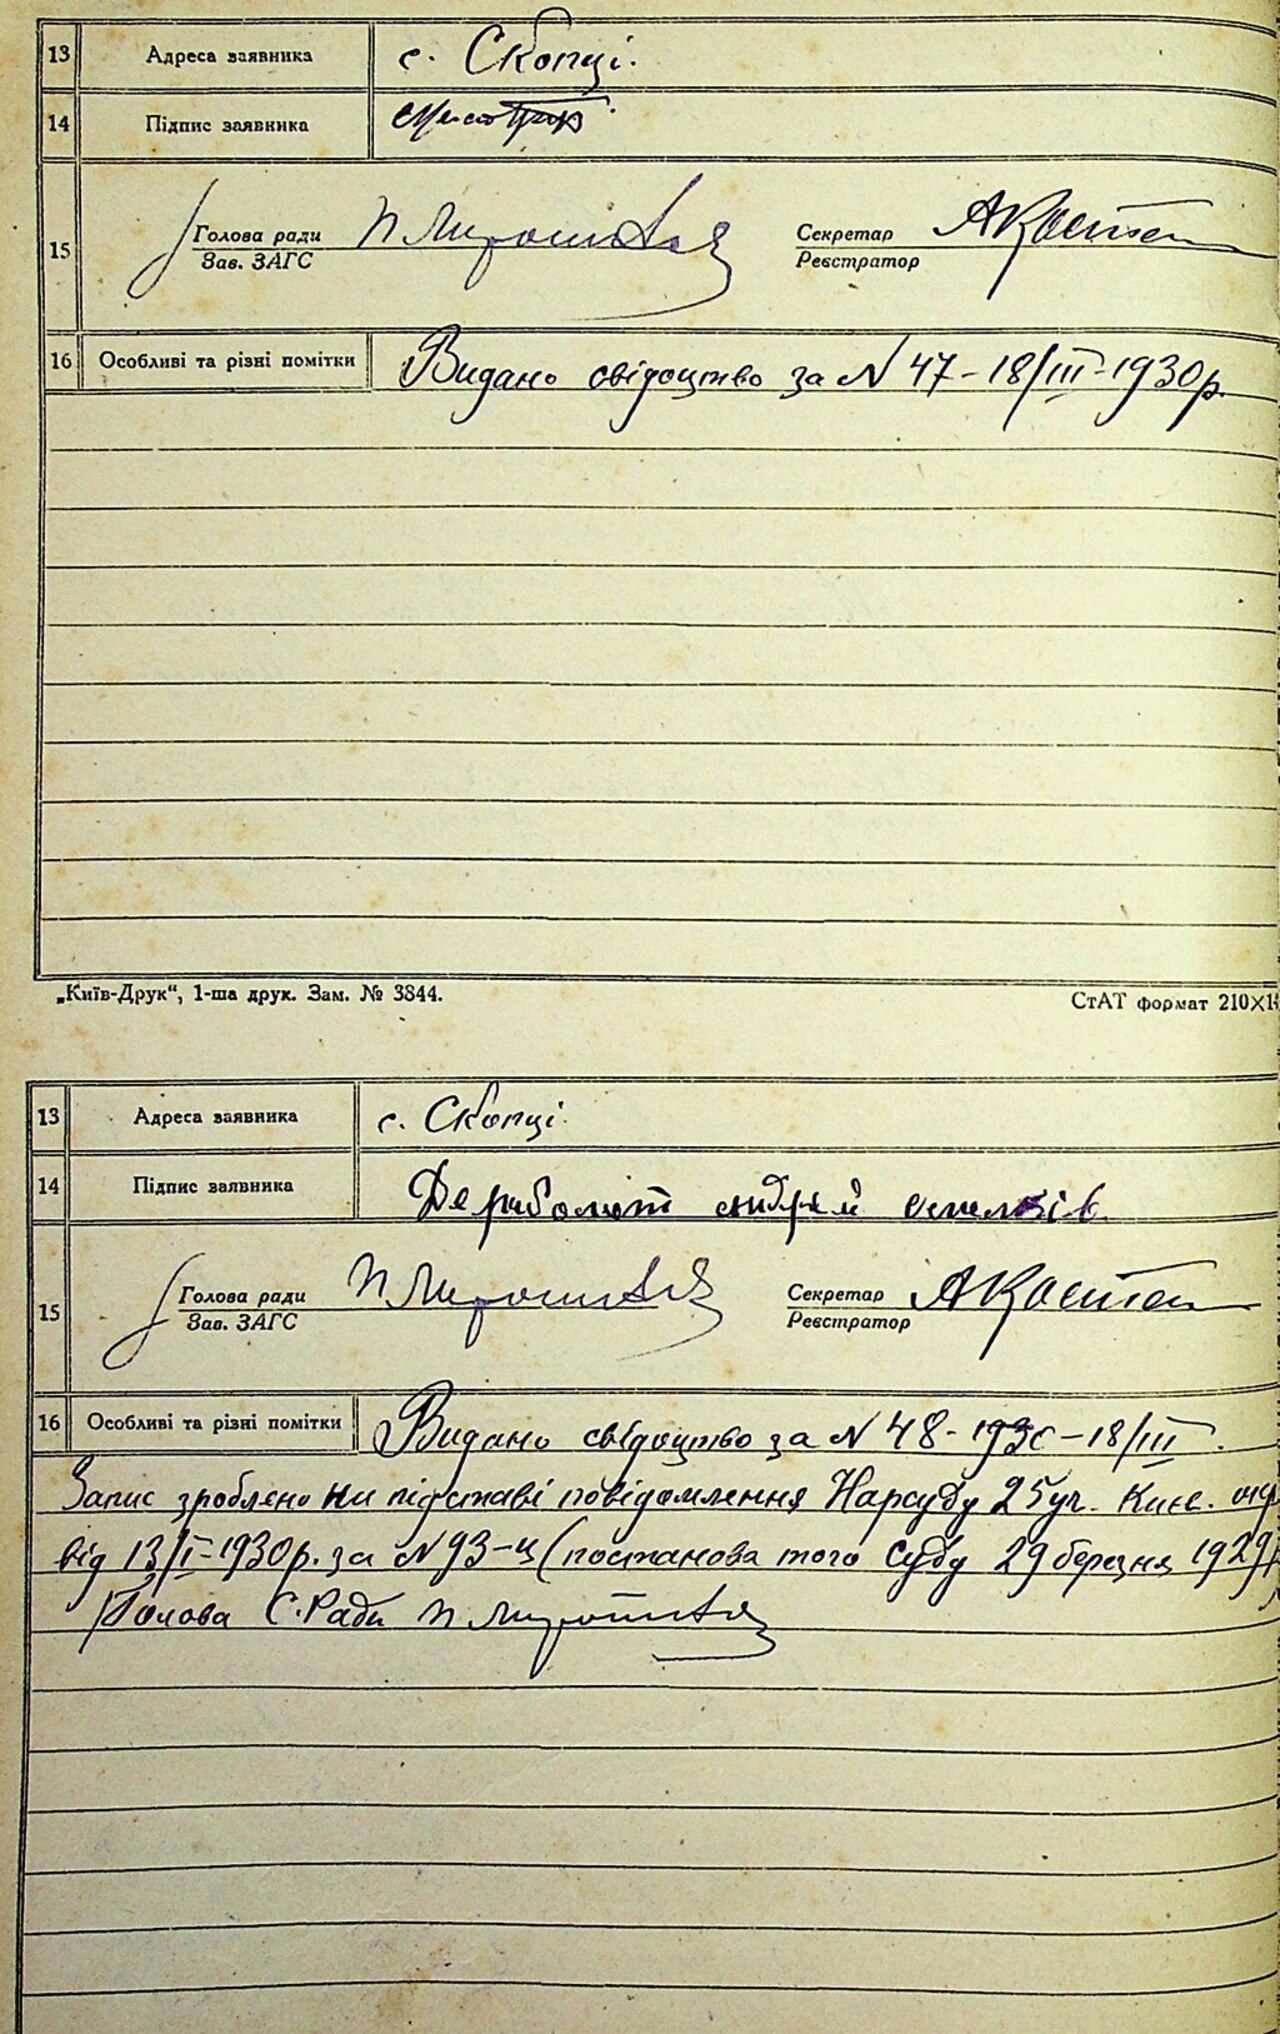 13 Адреса заявника с. Скопці.
14 Підпис заявника
15 Голова ради П. Мирошн Секретар А Костен
Зав. ЗАГС Реєстратор
16 Особливі та різні помітки Видано свідоцтво за N 47-18/III-1930р.
„Київ-Друк“, 1-ша друк. Зам. № 3844. СтАТ формат 210×1
13 Адреса заявника с. Скопці.
14 Підпис заявника Дериболот андрій
15 Голова ради П. Мирошн Секретар А Костен
Зав. ЗАГС Реєстратор
16 Особливі та різні помітки Видано свідоцтво за N 48-1930-18/III.
Запис зроблено на підставі повідомлення Нарсуду 25 уч. Києв. окр
від 13/I-1930р. за N 93-ц (постанова того Суду 29 березня 1929р
Голова С. Ради П. Мирошн